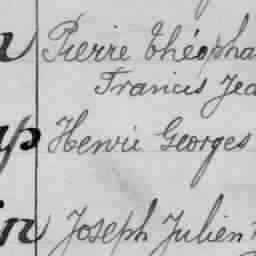 Pierre Théopha
Francis Jea
Henri Georges
Joseph Julien